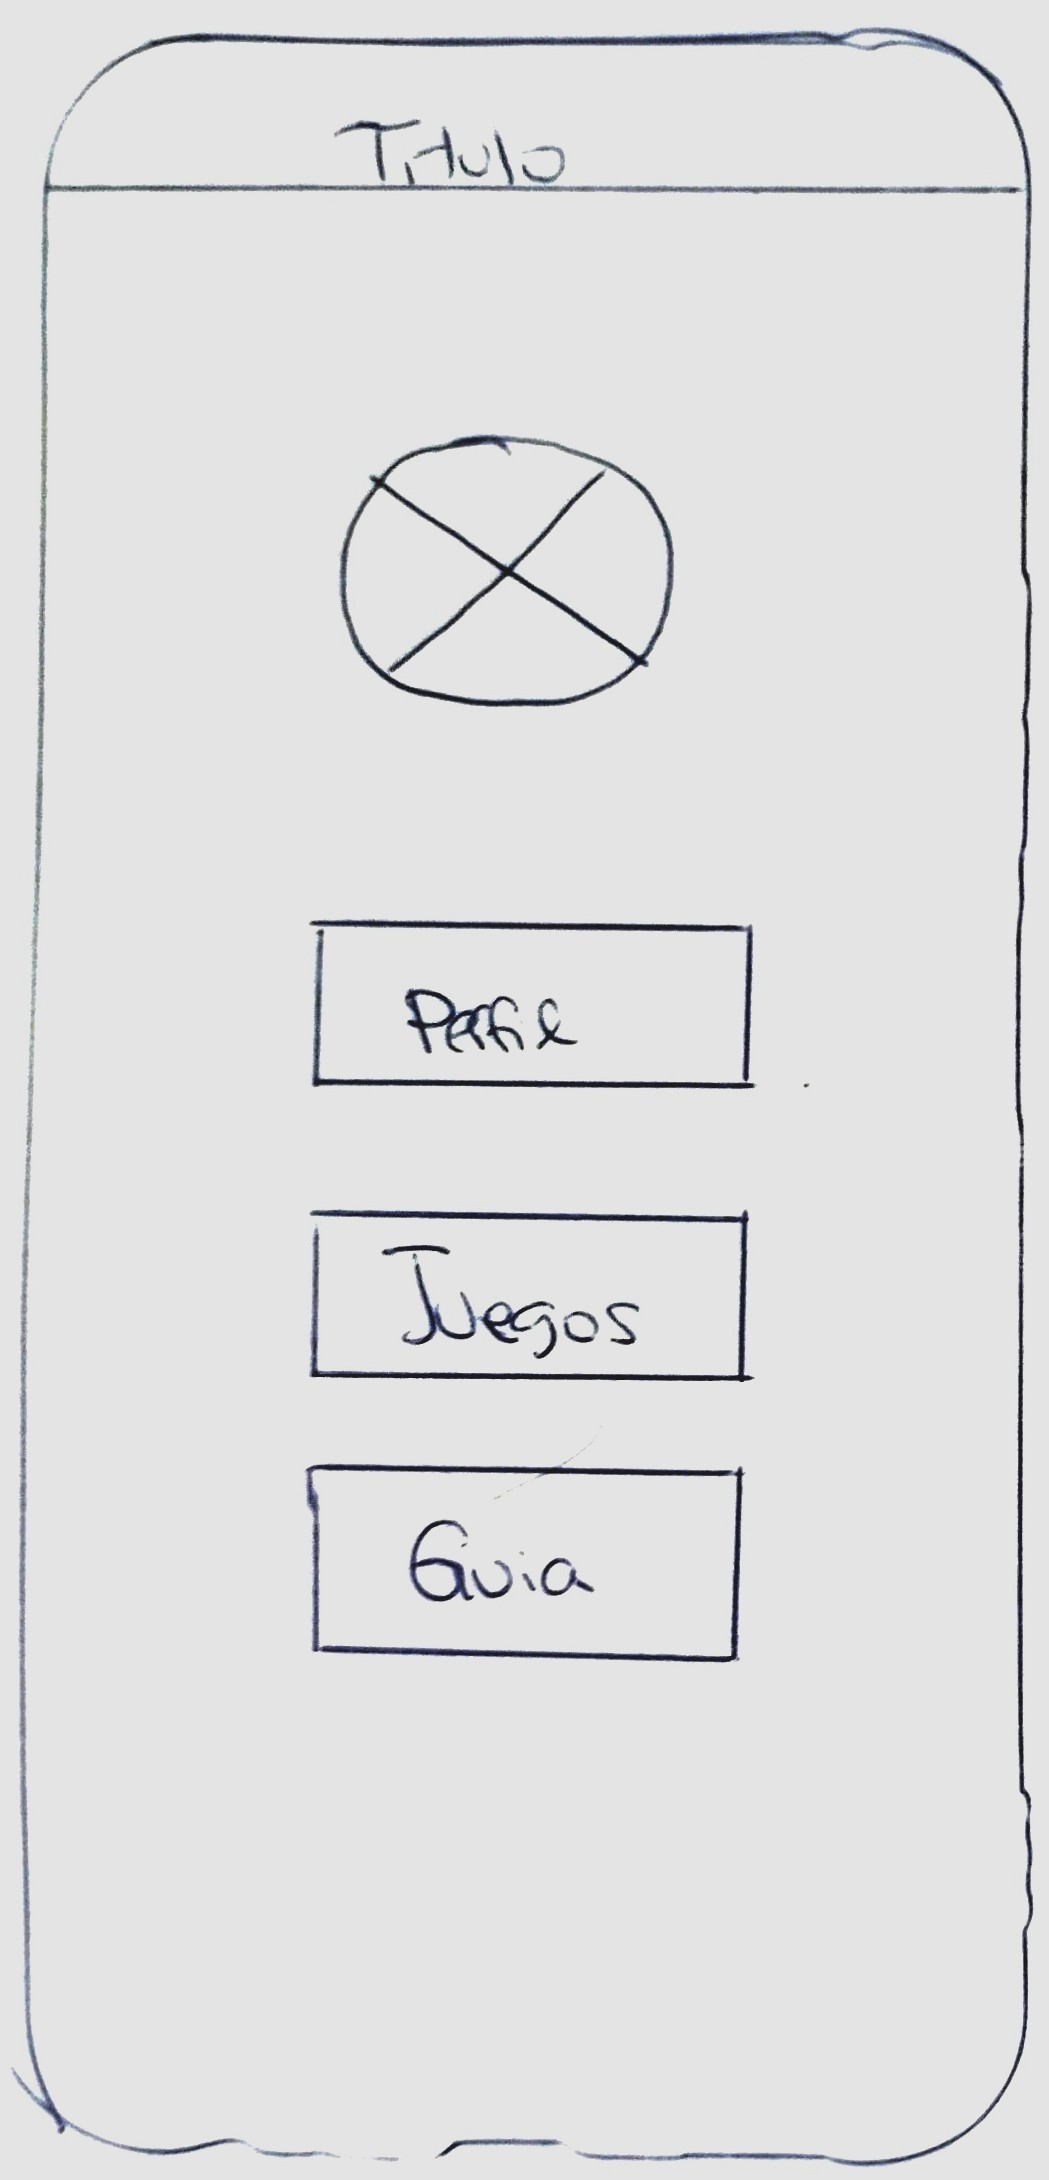 Titulo
Perfil
Juegos
Guia